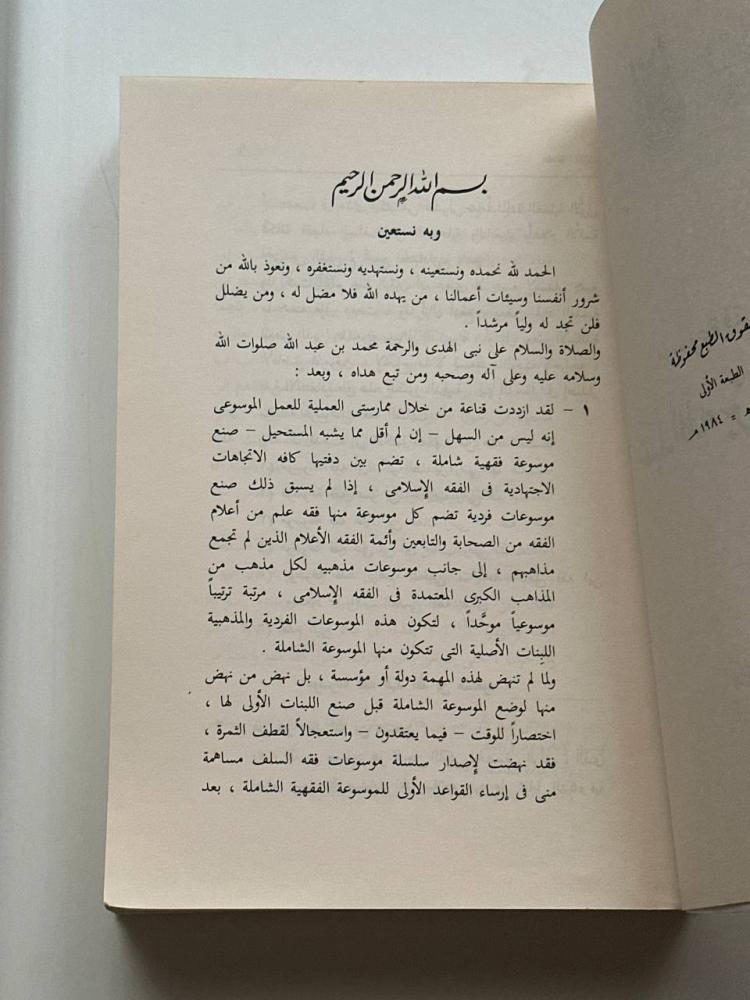 بسم الله الرحمن الرحيم
وبه نستعين
الحمد لله نحمده ونستعينه ، ونستهديه ونستغفره ، ونعوذ بالله من
شرور أنفسنا وسيئات أعمالنا ، من يهده الله فلا مضل له ، ومن يضلل
فلن تجد له ولياً مرشداً .
والصلاة والسلام على نبى الهدى والرحمة محمد بن عبد الله صلوات الله
وسلامه عليه وعلى آله وصحبه ومن تبع هداه ، وبعد :
١ – لقد ازددت قناعة من خلال ممارستى العملية للعمل الموسوعى
إنه ليس من السهل – إن لم أقل مما يشبه المستحيل – صنع
موسوعة فقهية شاملة ، تضم بين دفتيها كافه الاتجاهات
الاجتهادية فى الفقه الإسلامى ، إذا لم يسبق ذلك صنع
موسوعات فردية تضم كل موسوعة منها فقه علم من أعلام
الفقه من الصحابة والتابعين وأئمة الفقه الأعلام الذين لم تجمع
مذاهبهم ، إلى جانب موسوعات مذهبيه لكل مذهب من
المذاهب الكبرى المعتمدة فى الفقه الإسلامى ، مرتبة ترتيباً
موسوعياً موحَّداً ، لتكون هذه الموسوعات الفردية والمذهبية
اللبِنات الأصلية التى تتكون منها الموسوعة الشاملة .
ولما لم تنهض لهذه المهمة دولة أو مؤسسة ، بل نهض من نهض
منها لوضع الموسوعة الشاملة قبل صنع اللبنات الأولى لها ،
اختصاراً للوقت – فيما يعتقدون – واستعجالاً لقطف الثمرة ،
فقد نهضت لإصدار سلسلة موسوعات فقه السلف مساهمة
منى فى إرساء القواعد الأولى للموسوعة الفقهية الشاملة ، بعد
الطبع محفوظة
الطبعة الأولى
هـ = ١٩٨٤ م